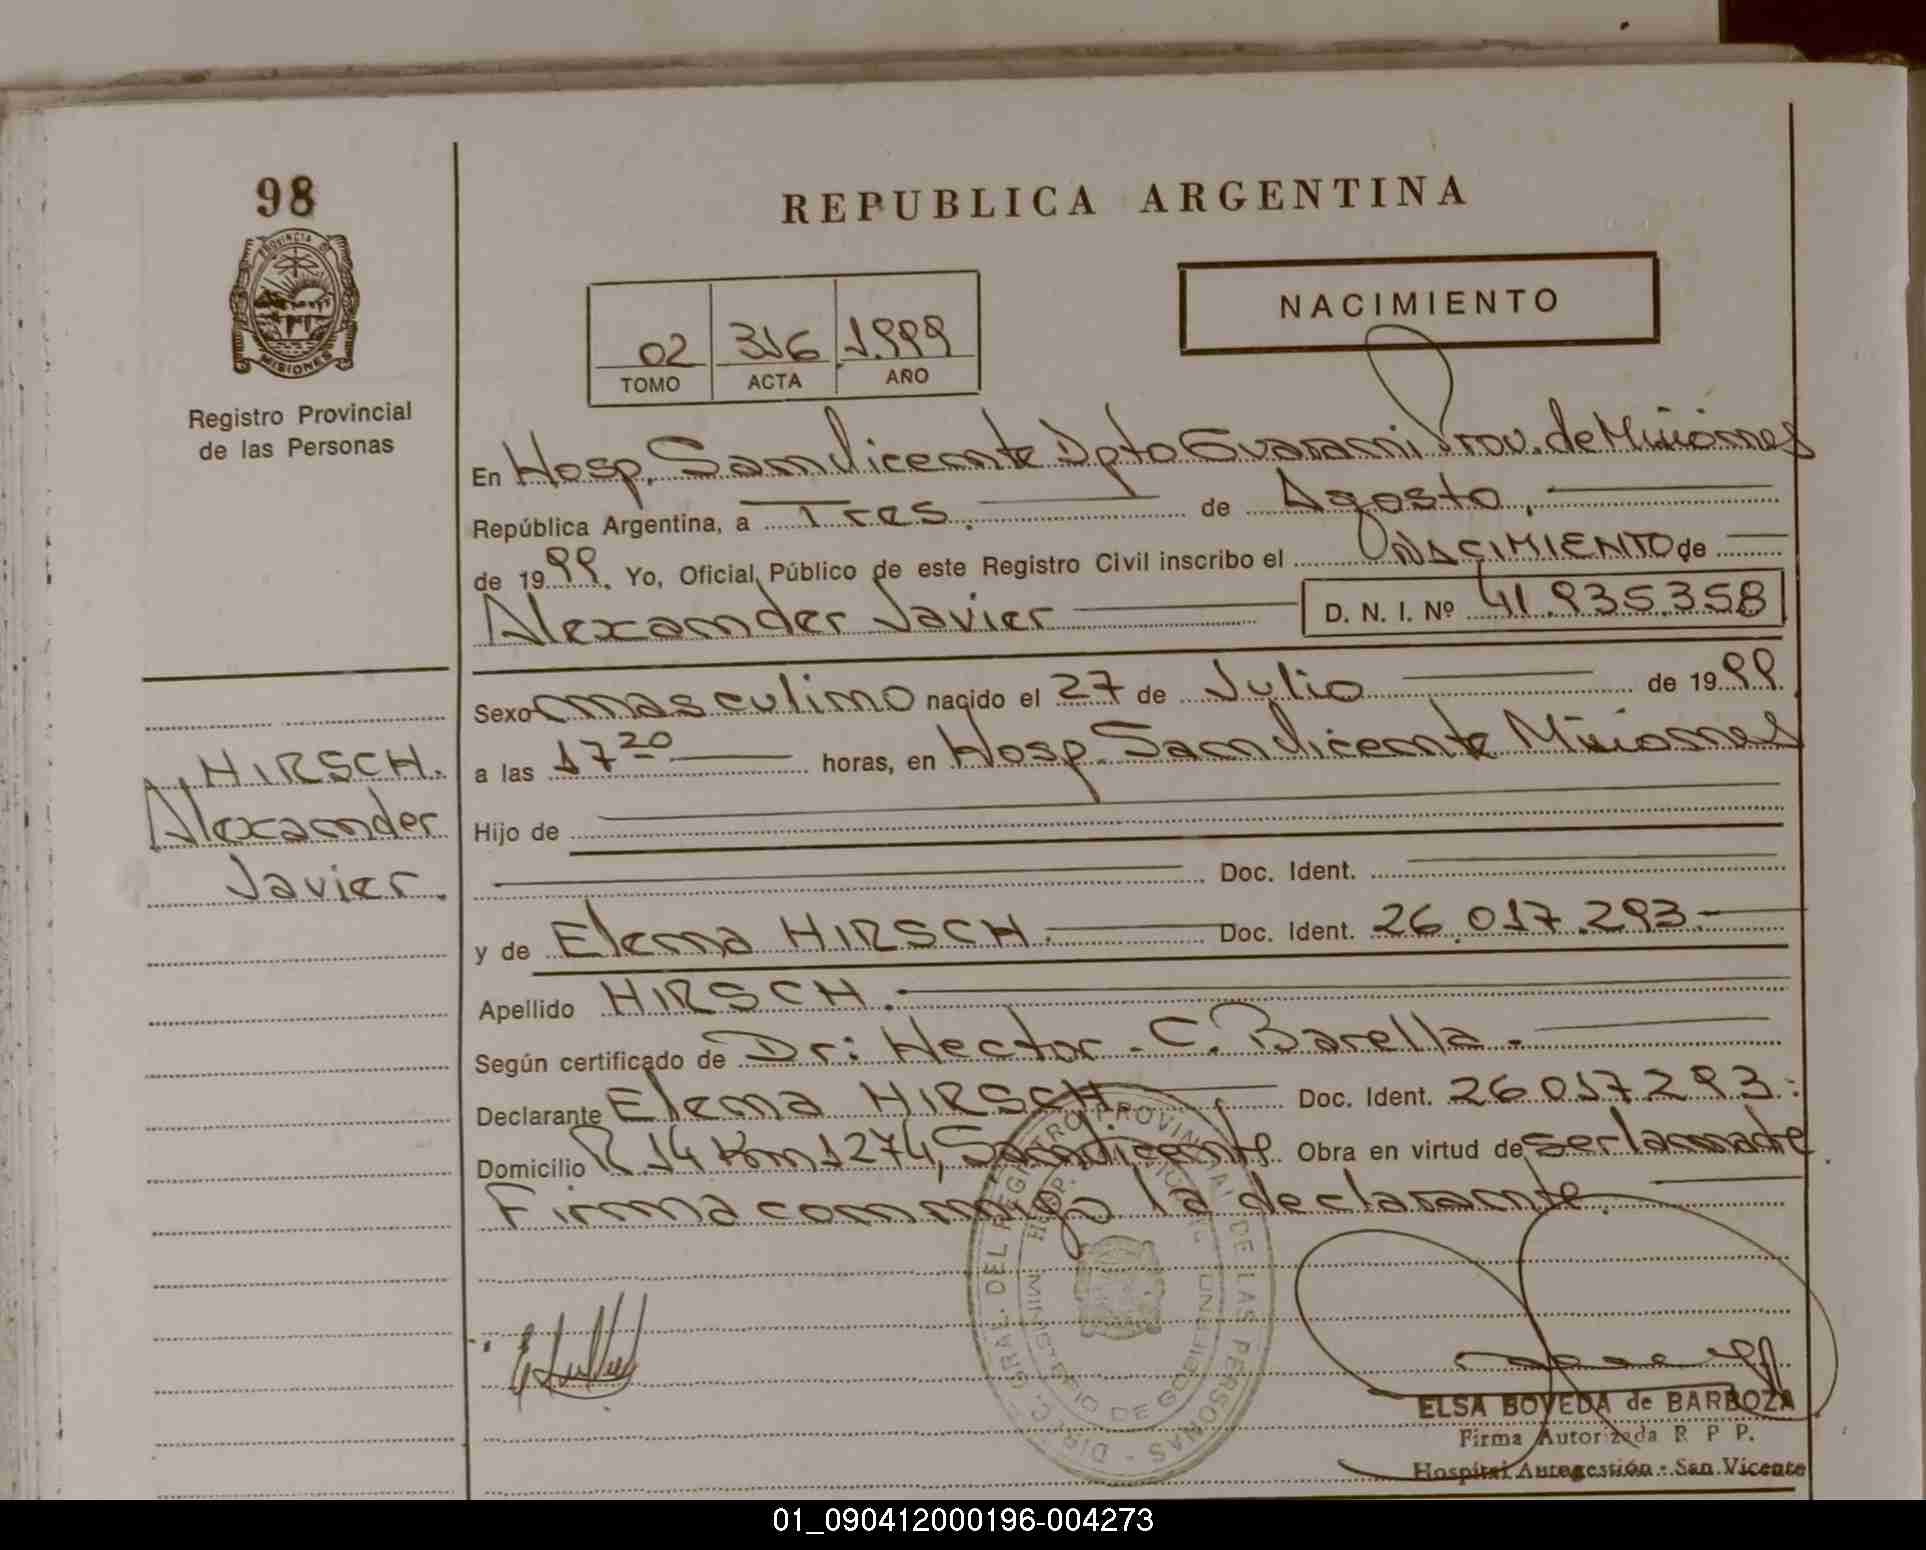 98
REPUBLICA ARGENTINA
PROVINCIA D
MISIONES
NACIMIENTO
02 316 1.999
TOMO ACTA AÑO
Registro Provincial
de las Personas
En Hosp. San Vicente Dpto Guarani Prov. de Misiones
República Argentina, a Tres. de Agosto,
de 1999. Yo, Oficial Público de este Registro Civil inscribo el NACIMIENTO de
Alexander Javier D. N. I. Nº 41.935.358
Sexo masculino nacido el 27 de Julio de 1999
HIRSCH.
a las 17 20 horas, en Hosp. San Vicente Misiones
Alexander
Hijo de
Javier.
Doc. Ident.
y de Elena HIRSCH. Doc. Ident. 26.017.293.-
Apellido HIRSCH.
Según certificado de Dr: Hector. C. Barella.
Declarante Elena HIRSCH, Doc. Ident. 26.017.293.
Domicilio R.14 Km 1274, San Vicente Obra en virtud de ser la madre.
Firma conmigo la declarante.
DIR. GRAL. DEL REGISTRO PROVINCIAL DE LAS PERSONAS
MINISTERIO DE GOBIERNO
ELSA BOVEDA de BARBOZA
Firma Autorizada R P P.
Hospital Autogestión - San Vicente
01_090412000196-004273